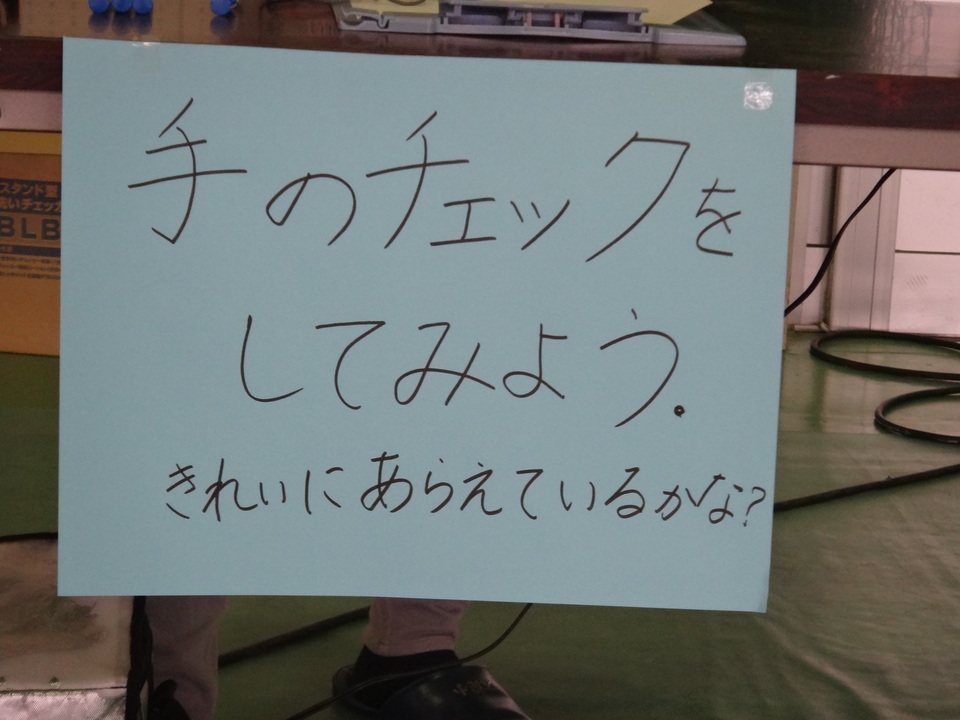 手のチェックを
してみよう.
きれいにあらえているかな?
スタンド型
洗いチェッカ
BLB